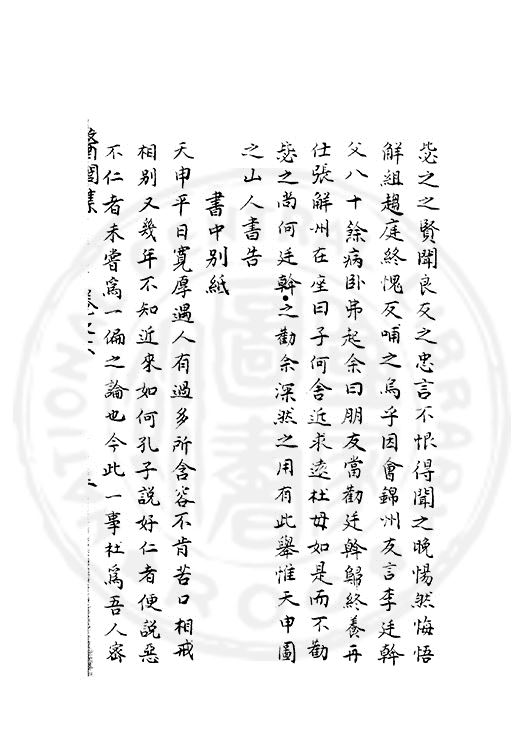 毖之之賢聞良友之忠言不恨得聞之晚惕然悔悟
解組趨庭終愧反哺之烏乎因會錦州友言李廷幹
父八十餘病卧弗起余曰朋友當勸廷幹歸終養再
仕張解州在座曰子何舍近求遠杜毋如是而不勸
毖之尚何廷幹之勸余深然之用有此舉惟天申圖
之山人書告
書中別紙
天申平日寬厚過人有過多所含容不肯苦口相戒
相別又幾年不知近來如何孔子說好仁者便說惡
不仁者未嘗爲一偏之論也今此一事杜爲吾人密
醫閭集 卷之六